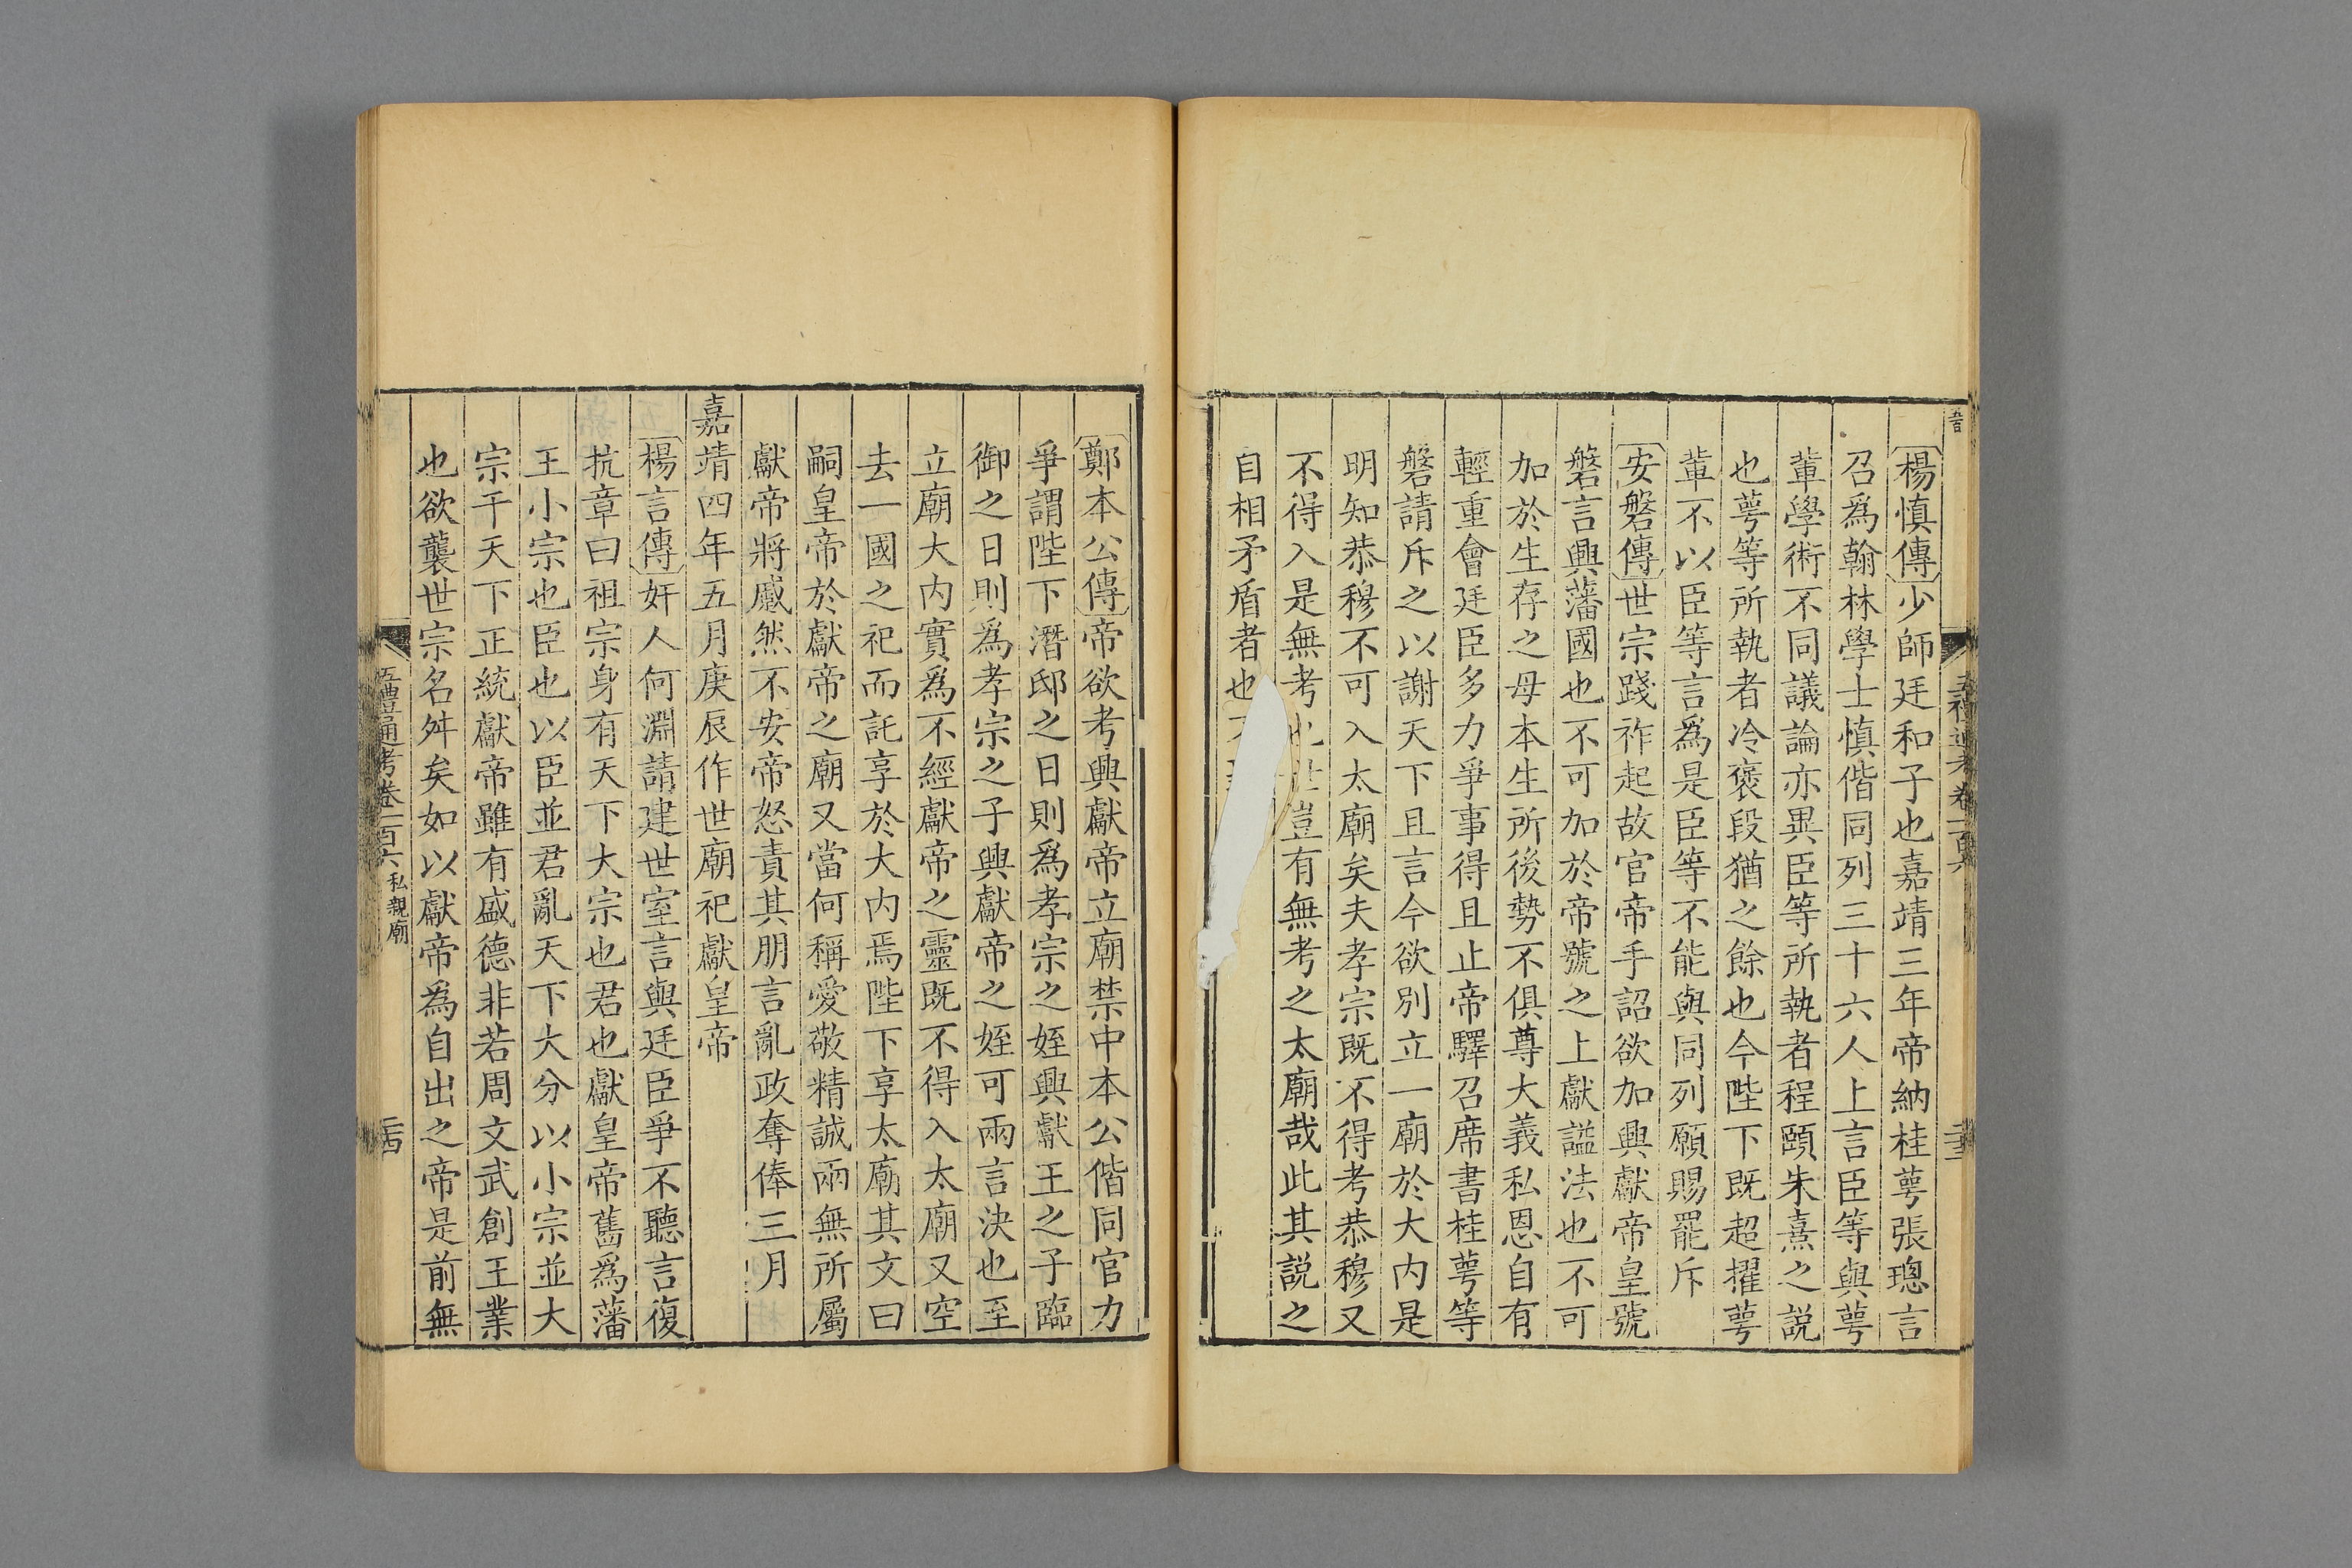 楊慎傳少師廷和子也嘉靖三年帝納桂萼張璁言
召爲翰林學士慎偕同列三十六人上言臣等與萼
輩學術不同議論亦異臣等所執者程頤朱熹之説
也萼等所執者冷褒段猶之餘也今陛下既超擢萼
輩不以臣等言爲是臣等不能與同列願賜罷斥
安磐傳世宗踐祚起故官帝手詔欲加興獻帝皇號
磐言興藩國也不可加於帝號之上獻謚法也不可
加於生存之母本生所後勢不俱尊大義私恩自有
輕重會廷臣多力爭事得且止帝驛召席書桂萼等
磐請斥之以謝天下且言今欲別立一廟於大内是
明知恭穆不可入太廟矣夫孝宗既不得考恭穆又
不得入是無考也世豈有無考之太廟哉此其説之
自相矛盾者也不
鄭本公傳帝欲考興獻帝立廟禁中本公偕同官力
爭謂陛下潛邸之日則爲孝宗之姪興獻王之子臨
御之日則爲孝宗之子興獻帝之姪可兩言決也至
立廟大内實爲不經獻帝之靈既不得入太廟又空
去一國之祀而託享於大内焉陛下享太廟其文曰
嗣皇帝於獻帝之廟又當何稱愛敬精誠兩無所屬
獻帝將慼然不安帝怒責其朋言亂政奪俸三月
嘉靖四年五月庚辰作世廟祀獻皇帝
楊言傳奸人何淵請建世室言與廷臣爭不聽言復
抗章曰祖宗身有天下大宗也君也獻皇帝舊爲藩
王小宗也臣也以臣並君亂天下大分以小宗並大
宗干天下正統獻帝雖有盛德非若周文武創王業
也欲襲世宗名舛矣如以獻帝為自出之帝是前無
五禮通考卷一百六 私親廟
二十四